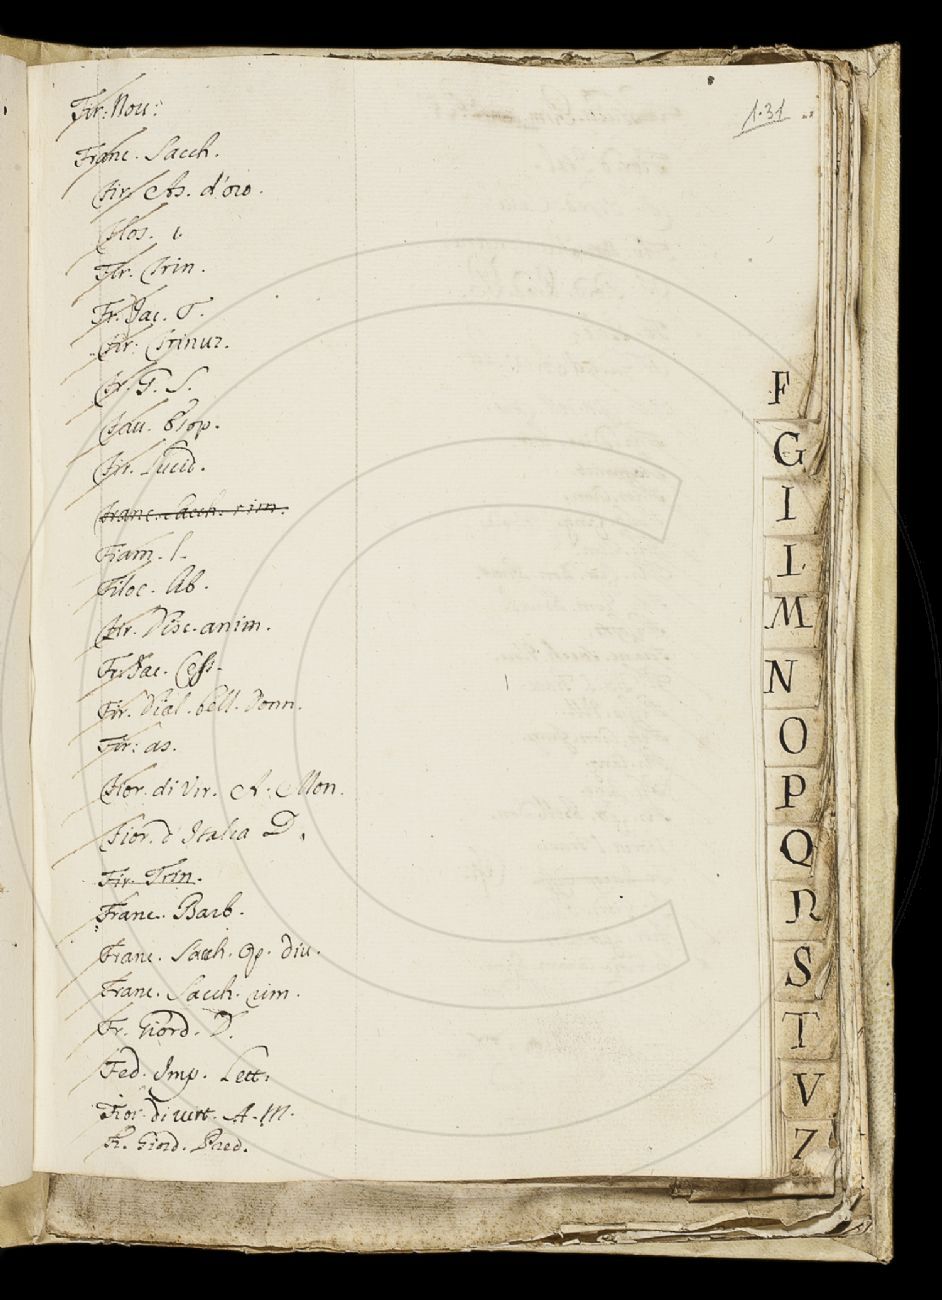 131
Fir: Nov:
Franc. Sacch.
Fir. As. d'oro.
Flos. i.
Fir. Trin.
Fr. Jac. T.
Fir: Trinuz.
Fr. G. S.
Fav. Esop.
Fir. Lucid.
Franc. Sacch. rim.
Fiam. l.
Filoc. Ab.
Fir. Disc. anim.
Fr. Jac. Cess.
Fir. Dial. bell. Donn.
Fir: as.
Fior. di Vir. A. Mon.
Fior. d'Italia D.
Fir. Trin.
Franc. Barb.
Franc. Sacch. Op. div.
Franc. Sacch. rim.
Fr. Giord. D.
Fed. Imp. Lett.
Fior. di virt. A. M.
Fr. Giord. Pred.
F
G
I
L
M
N
O
P
Q
R
S
T
V
Z